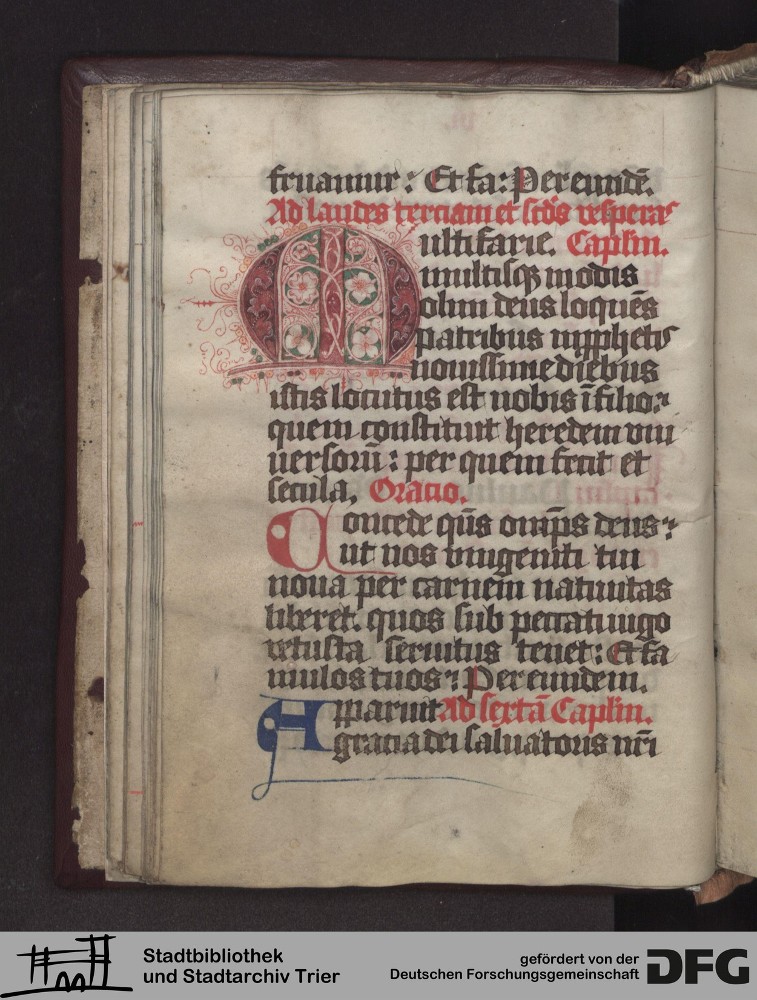 fruamur : Et fa : Per eundē.
Ad laudes terciam et scd̄s vesperas
Multifarie. Caplm.
multisqꝫ modis
olim deus loquēs
patribus in ꝓphetis
nouissime diebus
istis locutus est nobis ī filio :
quem constituit heredem vni
uersorū : per quem fecit et
secula, Oracio.
Concede qūs omp̄s deus :
ut nos vnigeniti tui
noua per carnem natiuitas
liberet. quos sub peccati iugo
vetusta seruitus tenet : Et fa
mulos tuos : Per eundem.
Apparuit Ad sextā Caplm.
gracia dei saluatoris nr̄i
Stadtbibliothek
und Stadtarchiv Trier
gefördert von der
Deutschen Forschungsgemeinschaft
DFG